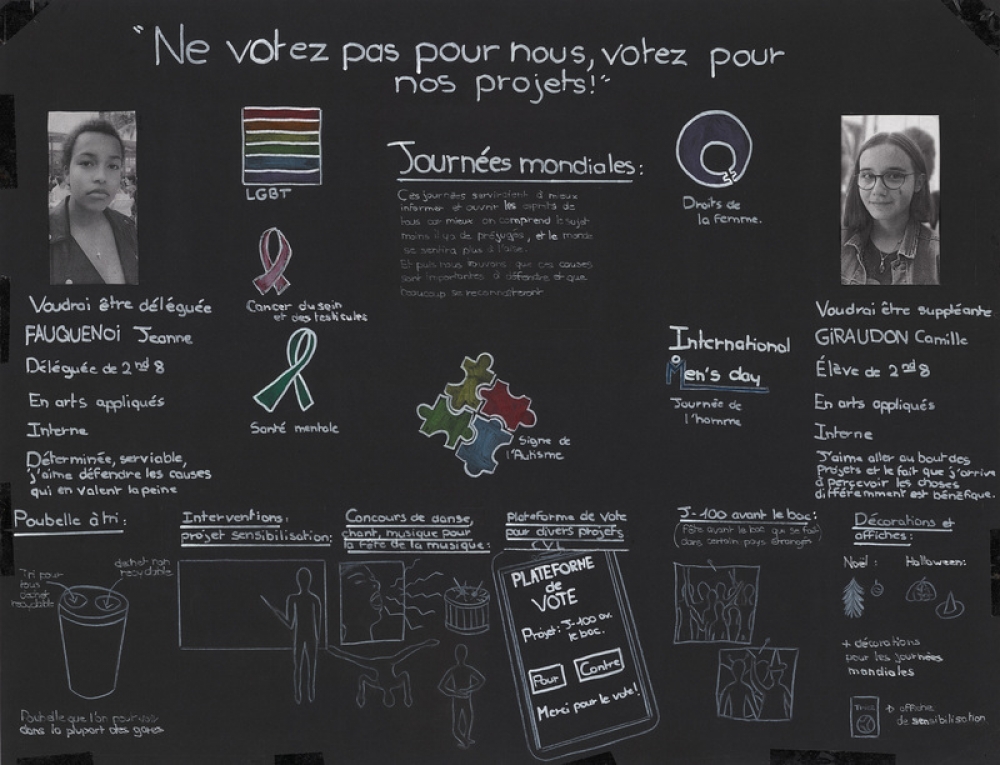 "Ne votez pas pour nous, votez pour
nos projets!"
Voudrai être déléguée
FAUQUENOI Jeanne
Déléguée de 2nd 8
En arts appliqués
Interne
Déterminée, serviable,
j'aime défendre les causes
qui en valent la peine
LGBT
Cancer du sein
et des testicules
Santé mentale
Journées mondiales:
Ces journées serviraient à mieux
informer et ouvrir les esprits de
tous car mieux on comprend le sujet
moins il y a de préjugés, et le monde
se sentira plus à l'aise.
Et puis nous trouvons que ces causes
sont importantes à défendre et que
beaucoup se reconnaitront
Signe de
l'Autisme
Droits de
la femme.
International
Men's day
Journée de
l'homme
Voudrai être suppléante
GIRAUDON Camille
Élève de 2nd 8
En arts appliqués
Interne
J'aime aller au bout des
Projets et le fait que j'arrive
à percevoir les choses
différemment est bénéfique.
Poubelle à tri:
Tri pour
tous
déchet
recyclable
déchet non
recyclable
Poubelle que l'on pourvoit
dans la plupart des gares
Interventions:
projet sensibilisation:
Concours de danse,
chant, musique pour
la fête de la musique:
Plateforme de vote
pour divers projets
CVL
PLATEFORME
de
VOTE
Projet: J-100 av.
le bac.
Pour Contre
Merci pour le vote!
J-100 avant le bac:
(Fête avant le bac qui se fait
dans certain pays étranger)
Décorations et
affiches:
Noël: Halloween:
+ décorations
pour les journées
mondiales
+ affiche
de sensibilisation